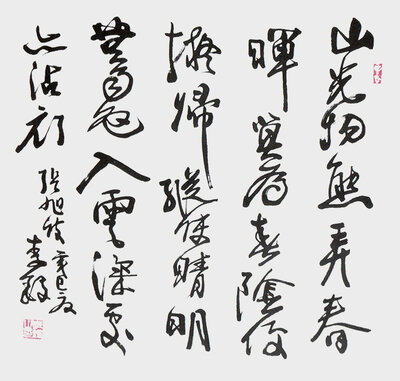 山光物態弄春
暉莫為輕陰便
擬歸縱使晴明
無雨色入雲深處
亦沾衣
張旭詩辛巳
李